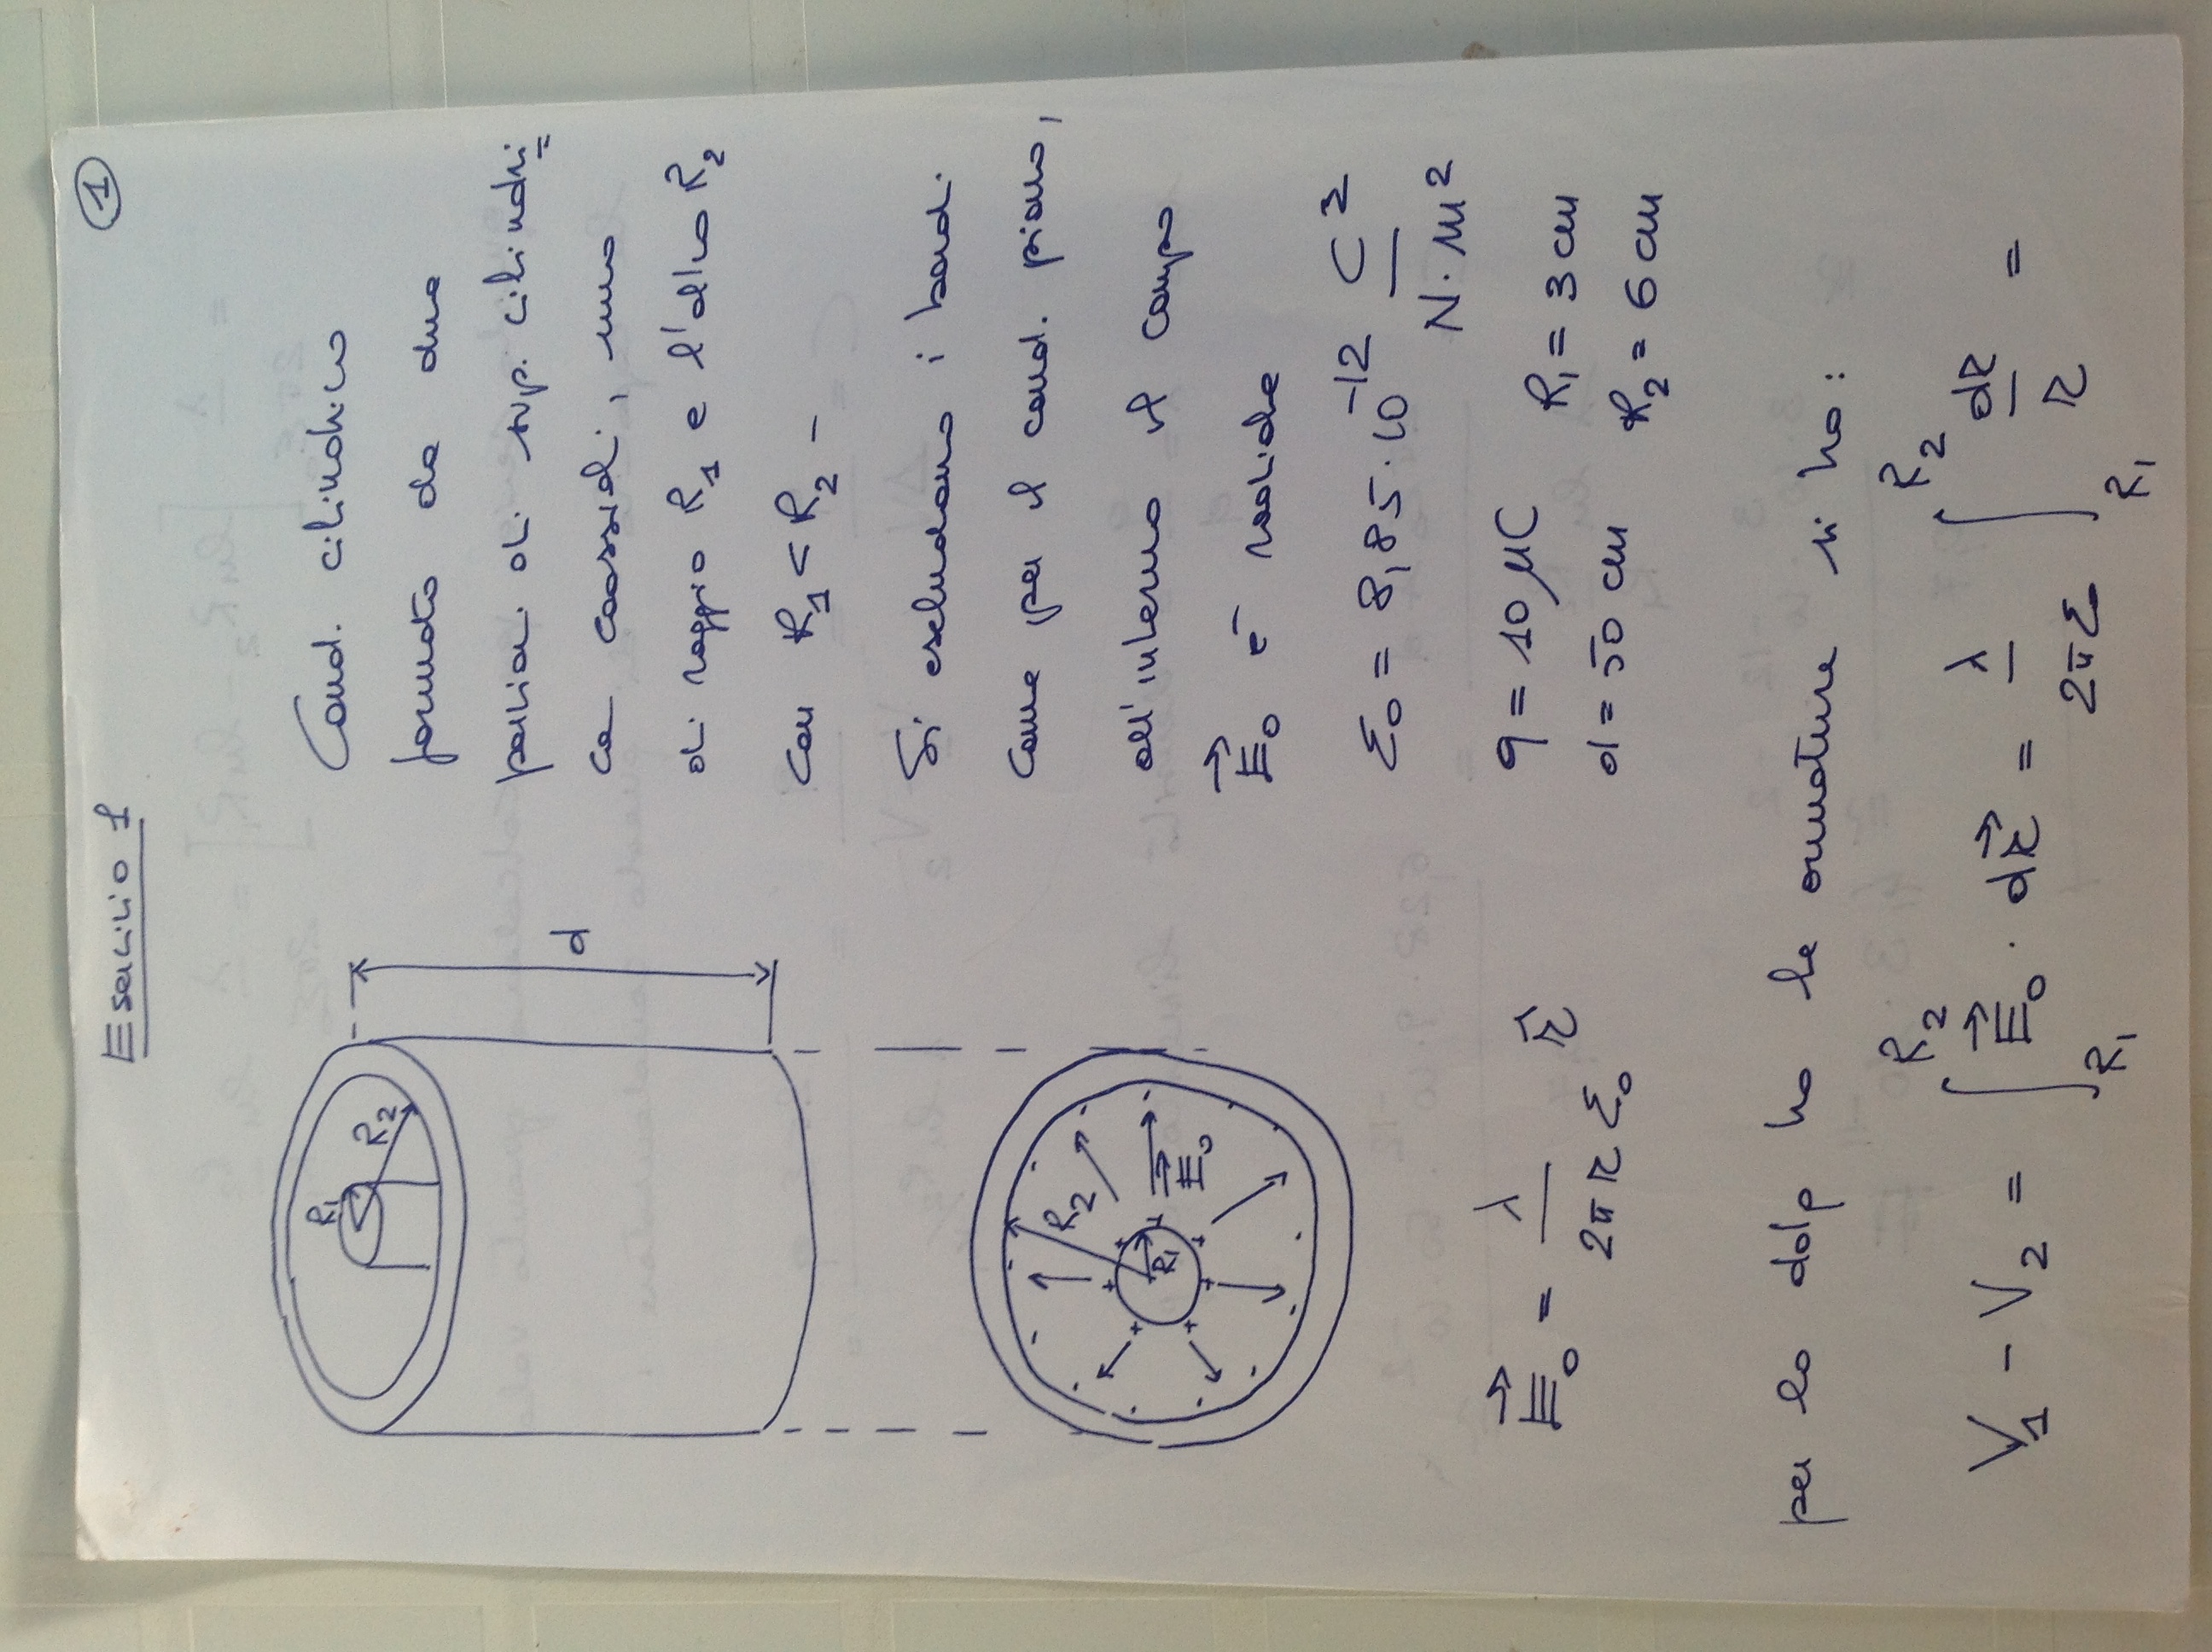 Esercizio 1
1
R₁
R₂
d
Cond. cilindrico
formato da due
porzioni di sup. cilindri=
ca coassiali, uno
di raggio R₁ e l'altro R₂
con R₁ < R₂ -
Si escludano i bordi
come per il cond. piano,
all'interno il campo
E⃗₀ è radiale
R₂
R₁
E⃗₀
ε₀ = 8,85·10⁻¹² C²/N·m²
E⃗₀ = λ/2πrε₀ r̂
q = 10 μC
R₁ = 3 cm
d = 50 cm
R₂ = 6 cm
per la ddp tra le armature si ha:
V₁ - V₂ = ∫_R₁^R₂ E⃗₀ · dr⃗ = λ/2πε₀ ∫_R₁^R₂ dr/r =